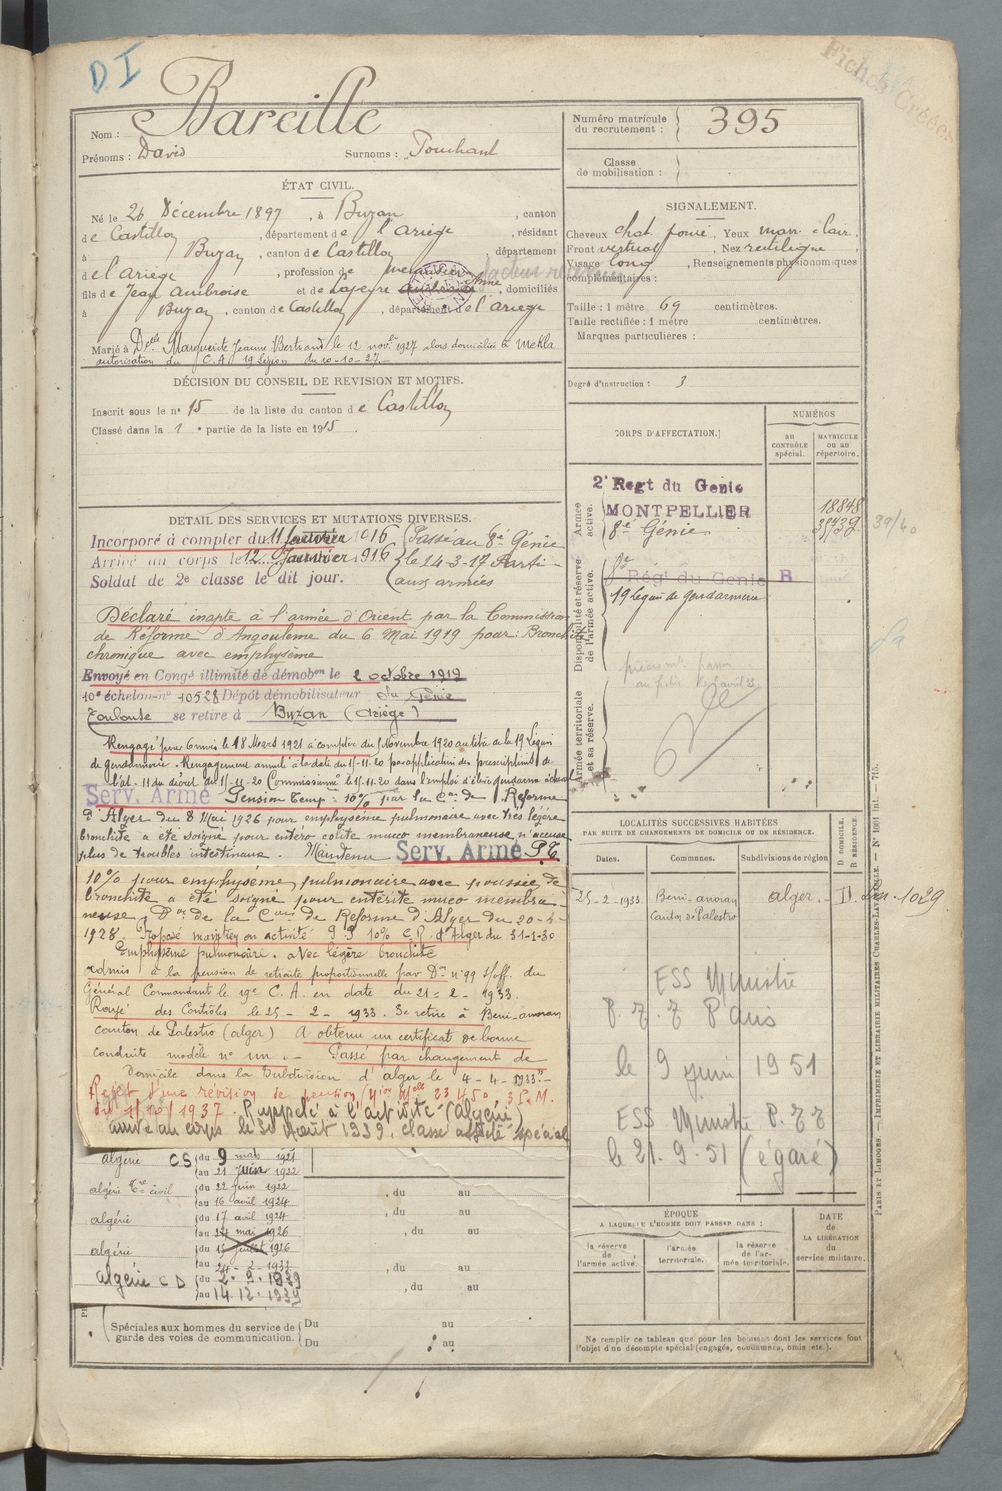 D I
Fiches Créées
Nom : Bareille
Prénoms : David Surnoms : Touchant
Numéro matricule du recrutement : 395
Classe de mobilisation :
ÉTAT CIVIL.
Né le 26 Décembre 1897, à Buzan, canton
de Castillon, département de l'ariège, résidant
à Buzan, canton de Castillon département
de l'ariège, profession de
fils de Jean Ambroise et de Lafeyre Anne, domiciliés
à Buzan, canton de Castillon, département de l'ariège
Marié à Delle Marguerite Jeanne Bertrand le 12 novbre 1927 alors domiciliée à mekla
autorisation du C.A 19 Légion du 10-10-27
SIGNALEMENT.
Cheveux chat foncé, Yeux marr. clair.
Front vertical, Nez rectiligne
Visage long, Renseignements physionomiques
complémentaires :
Taille : 1 mètre 69 centimètres.
Taille rectifiée : 1 mètre centimètres.
Marques particulières :
Degré d'instruction : 3
DÉCISION DU CONSEIL DE REVISION ET MOTIFS.
Inscrit sous le n° 15 de la liste du canton de Castillon
Classé dans la 1e partie de la liste en 1915.
DÉTAIL DES SERVICES ET MUTATIONS DIVERSES.
Incorporé à compter du 11 1916 Passé au 8e Génie
Arrivé au corps le 12 Janvier 1916 le 14-3-17 Parti
Soldat de 2e classe le dit jour. aux armées
Déclaré inapte à l'armée d'Orient par la Commission
de Réforme d'Angoulème du 6 Mai 1919 pour : Bronchite
chronique avec emphysème
Envoyé en Congé illimité de démobon le 2 octobre 1919
10e échelon n° 10528 Dépôt démobilisateur du Génie
Toulouse se retire à Buzan (Ariège)
Rengagé pour 6 mois le 18 Mars 1921 à compter du 1 Novembre 1920 au titre de la 19 Légion
de gendarmerie. Rengagement annulé à la date du 15-11-20 par application des prescriptions de
l'art. 11 du décret du 15-11-20 Commissionné le 15-11-20 dans l'emploi d'élève gendarme à cheval
Serv. Armé Pension Temp. 10% par la Con de Réforme
d'Alger du 8 Mai 1926 pour emphysème pulmonaire avec très légère
bronchite a été soigné pour entéro colite muco membraneuse, n'accuse
plus de troubles intestinaux. Maintenu Serv. Armé P.T
10% pour emphysème pulmonaire avec poussée de
bronchite a été soigné pour entérite muco membra-
neuse, Don de la Con de Réforme d'Alger du 20-4-
1928. Proposé maintien en activité P.P 10% C.R. d'Alger du 31-1-30
Emphysème pulmonaire. avec légère bronchite
admis à la pension de retraite proportionnelle par Don n° 99 du
Général Commandant le 19e C.A. en date du 21-2-1933.
Rayé des Contrôles le 25-2-1933. Se retire à Beni-amran
canton de Palestro (alger) A obtenu un certificat de bonne
conduite modèle n° un. - Passé par changement de
Domicile dans la Subdivision d'alger le 4-4-1933
Rejet d'une révision de pension 23450 3 P.M.
du 1/10/1937. Rappelé à l'activité (algérie)
arrivé au corps le 30 Août 1939, classé affecté spécial
algérie CS du 9 mars 1921
au 21 Juin 1922
algérie Tre civil du 22 Juin 1922
au 16 avril 1924
algérie du 17 avril 1924
au 24 mai 1926
algérie du 15 Juillet 1926
au 24-2-1933
algérie C D du 2-9-1939
au 14.12.1939
, du au
, du au
, du au
, du au
, du au
Spéciales aux hommes du service de garde des voies de communication. Du au
Du au
CORPS D'AFFECTATION.
NUMÉROS
au CONTRÔLE spécial.
MATRICULE ou au répertoire.
Armée active.
2e Regt du Genie
MONTPELLIER
8e Génie
18848
39/40
Disponibilité et réserve de l'armée active.
Rég' du Genie R
19 Legion de gendarmerie
Armée territoriale et sa réserve.
LOCALITÉS SUCCESSIVES HABITÉES
PAR SUITE DE CHANGEMENTS DE DOMICILE OU DE RÉSIDENCE.
Dates. Communes. Subdivisions de région
D DOMICILE. R RÉSIDENCE.
25-2-1933 Beni-amran
Canton de Palestro alger. D 1029
ESS Ministre
Paris
le 9 juin 1951
ESS Ministre
le 21.9.51 (égaré)
ÉPOQUE
A LAQUELLE L'HOMME DOIT PASSER DANS :
la réserve de l'armée active.
l'armée territoriale.
la réserve de l'armée territoriale.
DATE de LA LIBÉRATION du service militaire.
Ne remplir ce tableau que pour les hommes dont les services font
l'objet d'un décompte spécial (engagés, condamnés, omis etc.).
PARIS ET LIMOGES. — IMPRIMERIE ET LIBRAIRIE MILITAIRES CHARLES-LAVAUZELLE. — N° 1001 int. — 715.